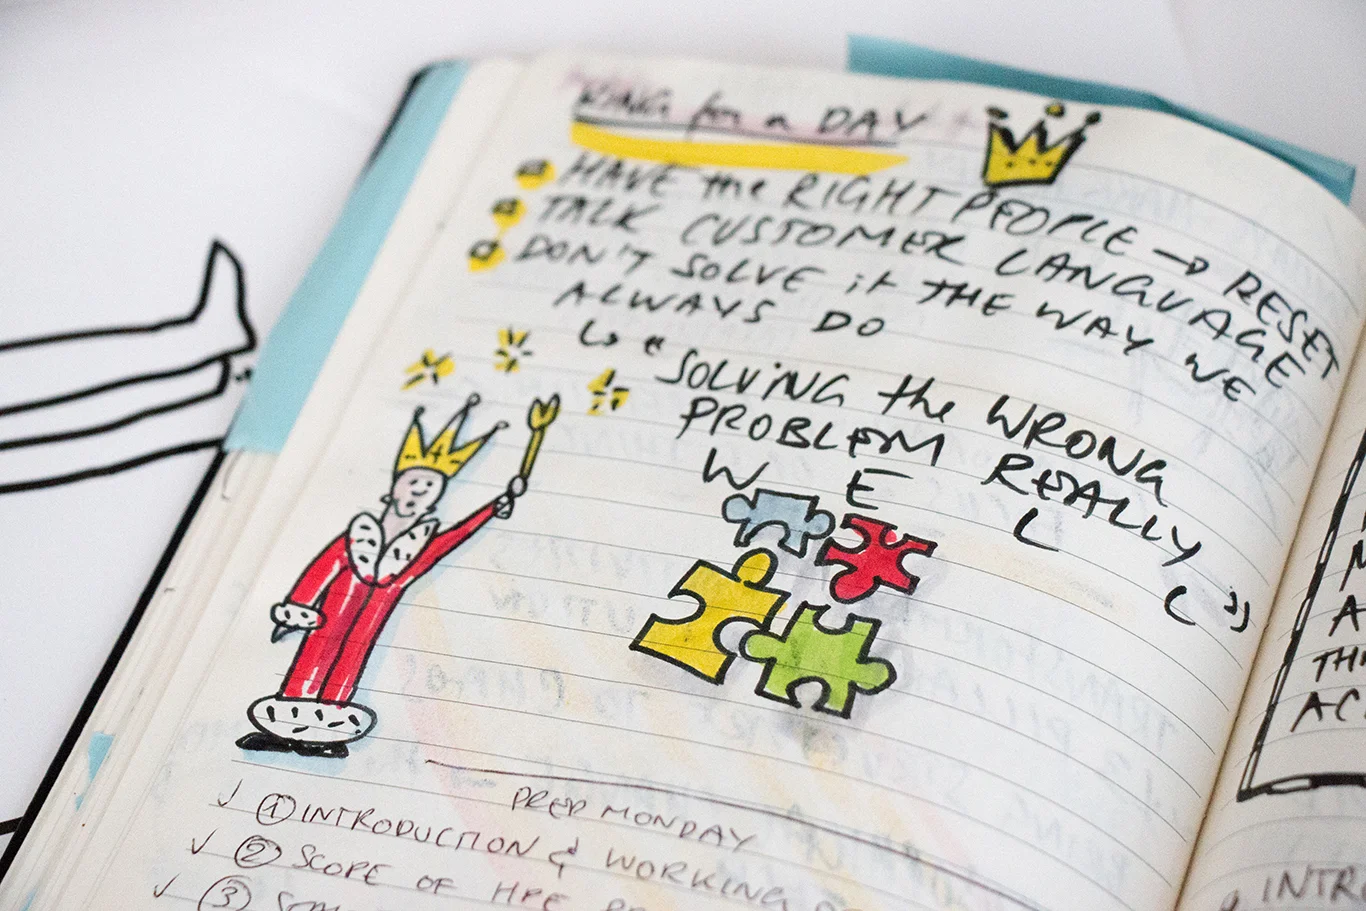 KING for a DAY
HAVE the RIGHT PEOPLE → RESET
TALK CUSTOMER LANGUAGE
DON'T SOLVE it THE WAY WE
ALWAYS DO
↳ "SOLVING the WRONG
PROBLEM REALLY
W E L L"
PREP MONDAY
✓ ① INTRODUCTION & WORKING
✓ ② SCOPE OF HPE
✓ ③
INTR